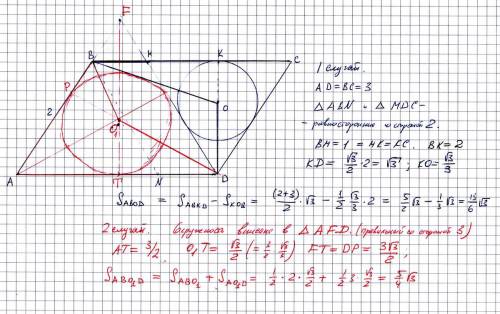 F
B
H
K
C
P
2
O
O₁
A
T
N
D
1 случай.
AD = BC = 3
△ ABN и △ MDC –
– равносторонние со стороной 2.
BH = 1 = HK = KC. BK = 2
KD = √3/2 · 2 = √3 ; KO = √3/3
S_ABOD = S_ABKD − S_KOB = (2+3)/2 · √3 − 1/2 · √3/3 · 2 = 5/2 √3 − 1/3 √3 = 13/6 √3
2 случай. Окружность вписана в △ AFD. (правильный со стороной 3)
AT = 3/2, O₁T = √3/2 (= 1/3 · √3/2) FT = DP = 3√3/2,
S_ABO₁D = S_ABO₁ + S_AO₁D = 1/2 · 2 · √3/2 + 1/2 · 3 · √3/2 = 5/4 √3